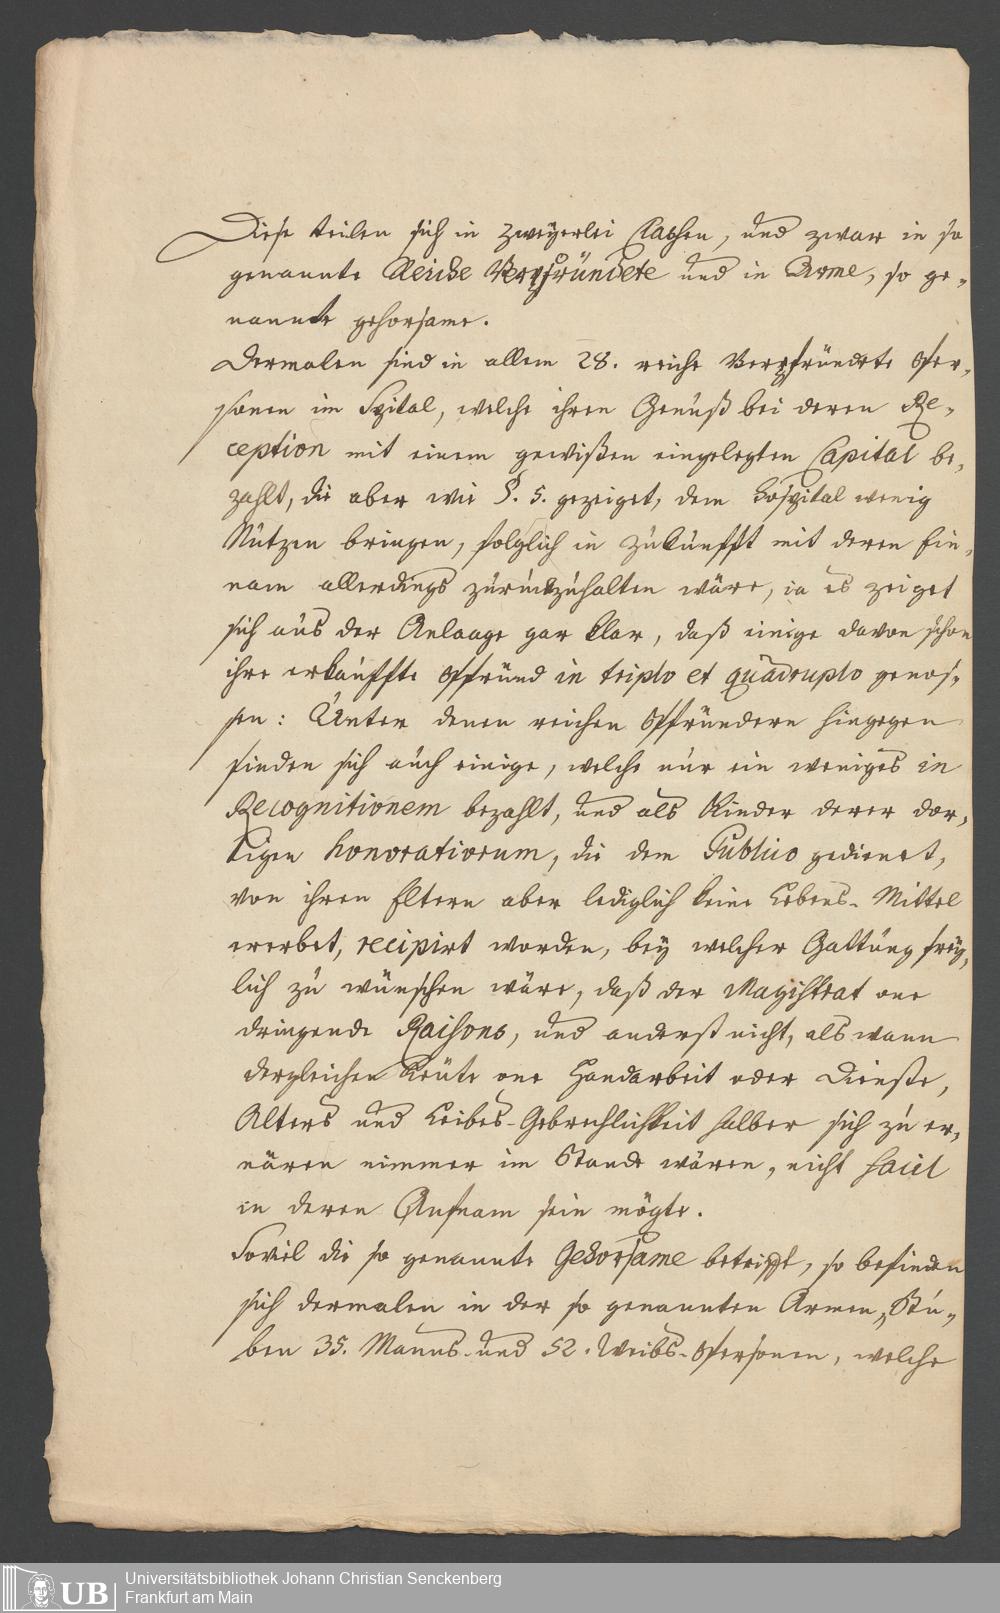 Diese teilen sich in zweyerlei Classen, und zwar in so
genannte Reiche Verpfründete und in Arme, so ge„
nannte gehorsame.
Dermalen sind in allem 28. reiche Verpfründete Per„
sonen im Spital, welche ihren Genuß bei deren Re„
ception mit einem gewißen eingelegten Capital be„
zahlt, die aber wie §. 5. gezeiget, dem Hospital wenig
Nutzen bringen, folglich in Zukunfft mit deren Ein„
nam allerdings zurückzuhalten wäre, ia es zeiget
sich aus der Anlaage gar klar, daß einige davon schon
ihre erkauffte Pfründ in triplo et quadruplo genos„
sen: Unter denen reichen Pfründern hingegen
finden sich auch einige, welche nur ein weniges in
Recognitionem bezahlt, und als Kinder derer dor„
tigen honoratiorum, die dem Publico gedienet,
von ihren Eltern aber lediglich keine Lebens-Mittel
ererbet, recipirt worden, bey welcher Gattung frey„
lich zu wünschen wäre, daß der Magistrat one
dringende Raisons, und anderst nicht, als wann
dergleichen Leute one Handarbeit oder Dienste,
Alters und Leibes-Gebrechlichkeit halber sich zu er„
nären nimmer im Stande wären, nicht facil
in deren Aufnam sein mögte.
Soviel die so genannte Gehorsame betrifft, so befinden
sich dermalen in der so genannten Armen„Stu„
ben 35. Manns- und 52. Weibs-Personen, welche
Universitätsbibliothek Johann Christian Senckenberg
Frankfurt am Main
UB